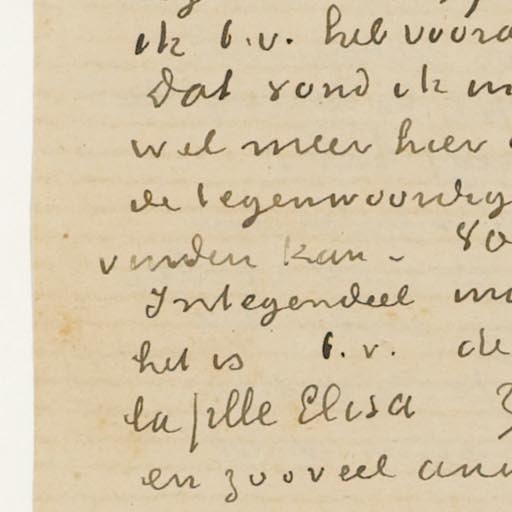 ik b.v. heb voora
Dat vond ik in
wel meer hier
de tegenwoordig
vinden kan - 80
Integendeel
het is b.v. de
la fille Elisa
en zooveel